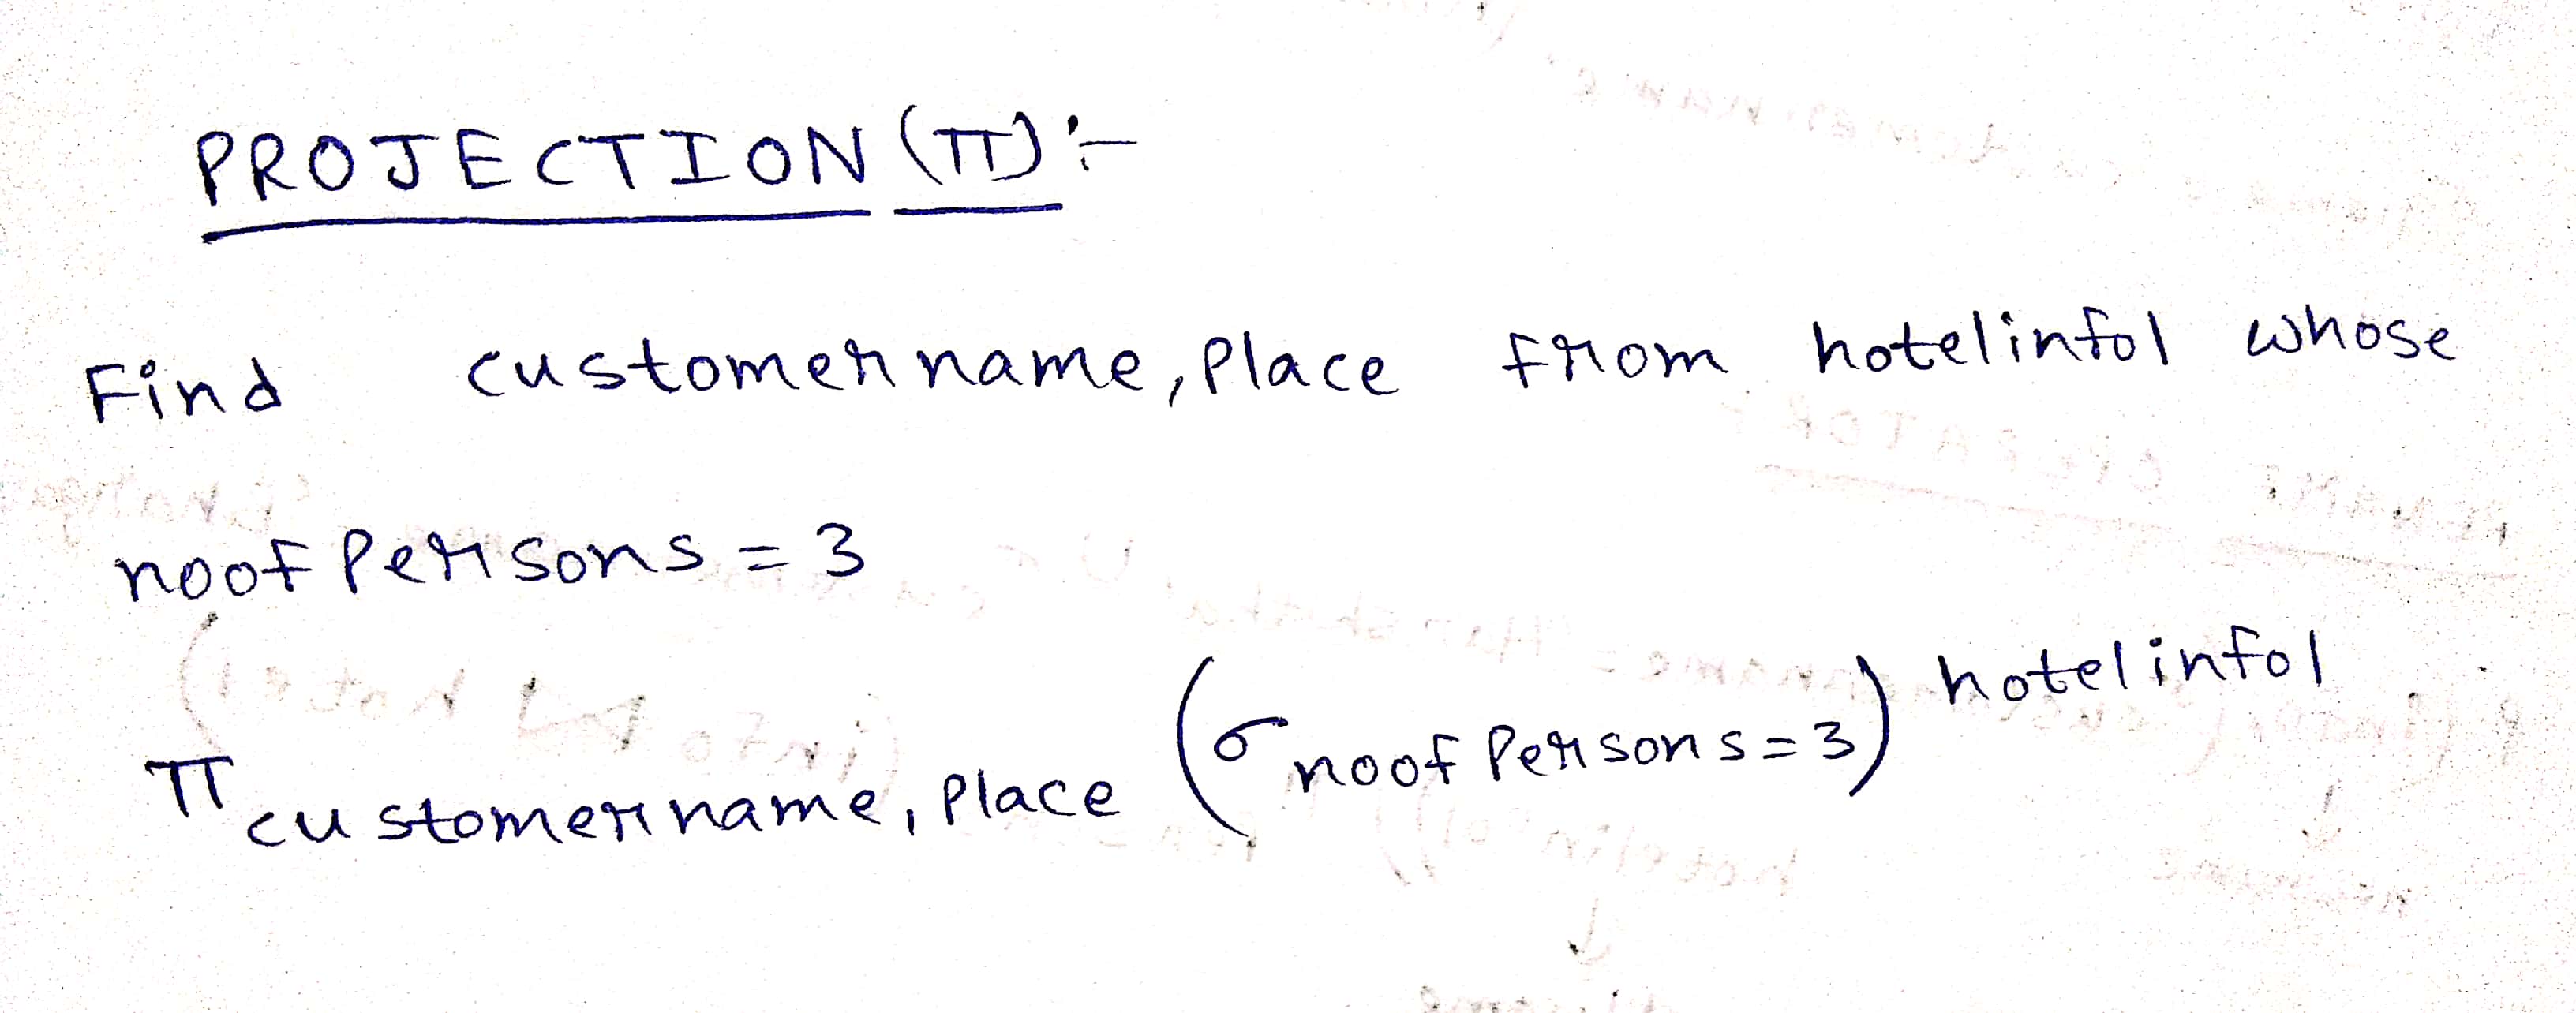 PROJECTION (π):-
Find customername, Place from hotelinfo1 whose
noofPersons = 3
π customername, Place (σ noofPersons=3) hotelinfo1